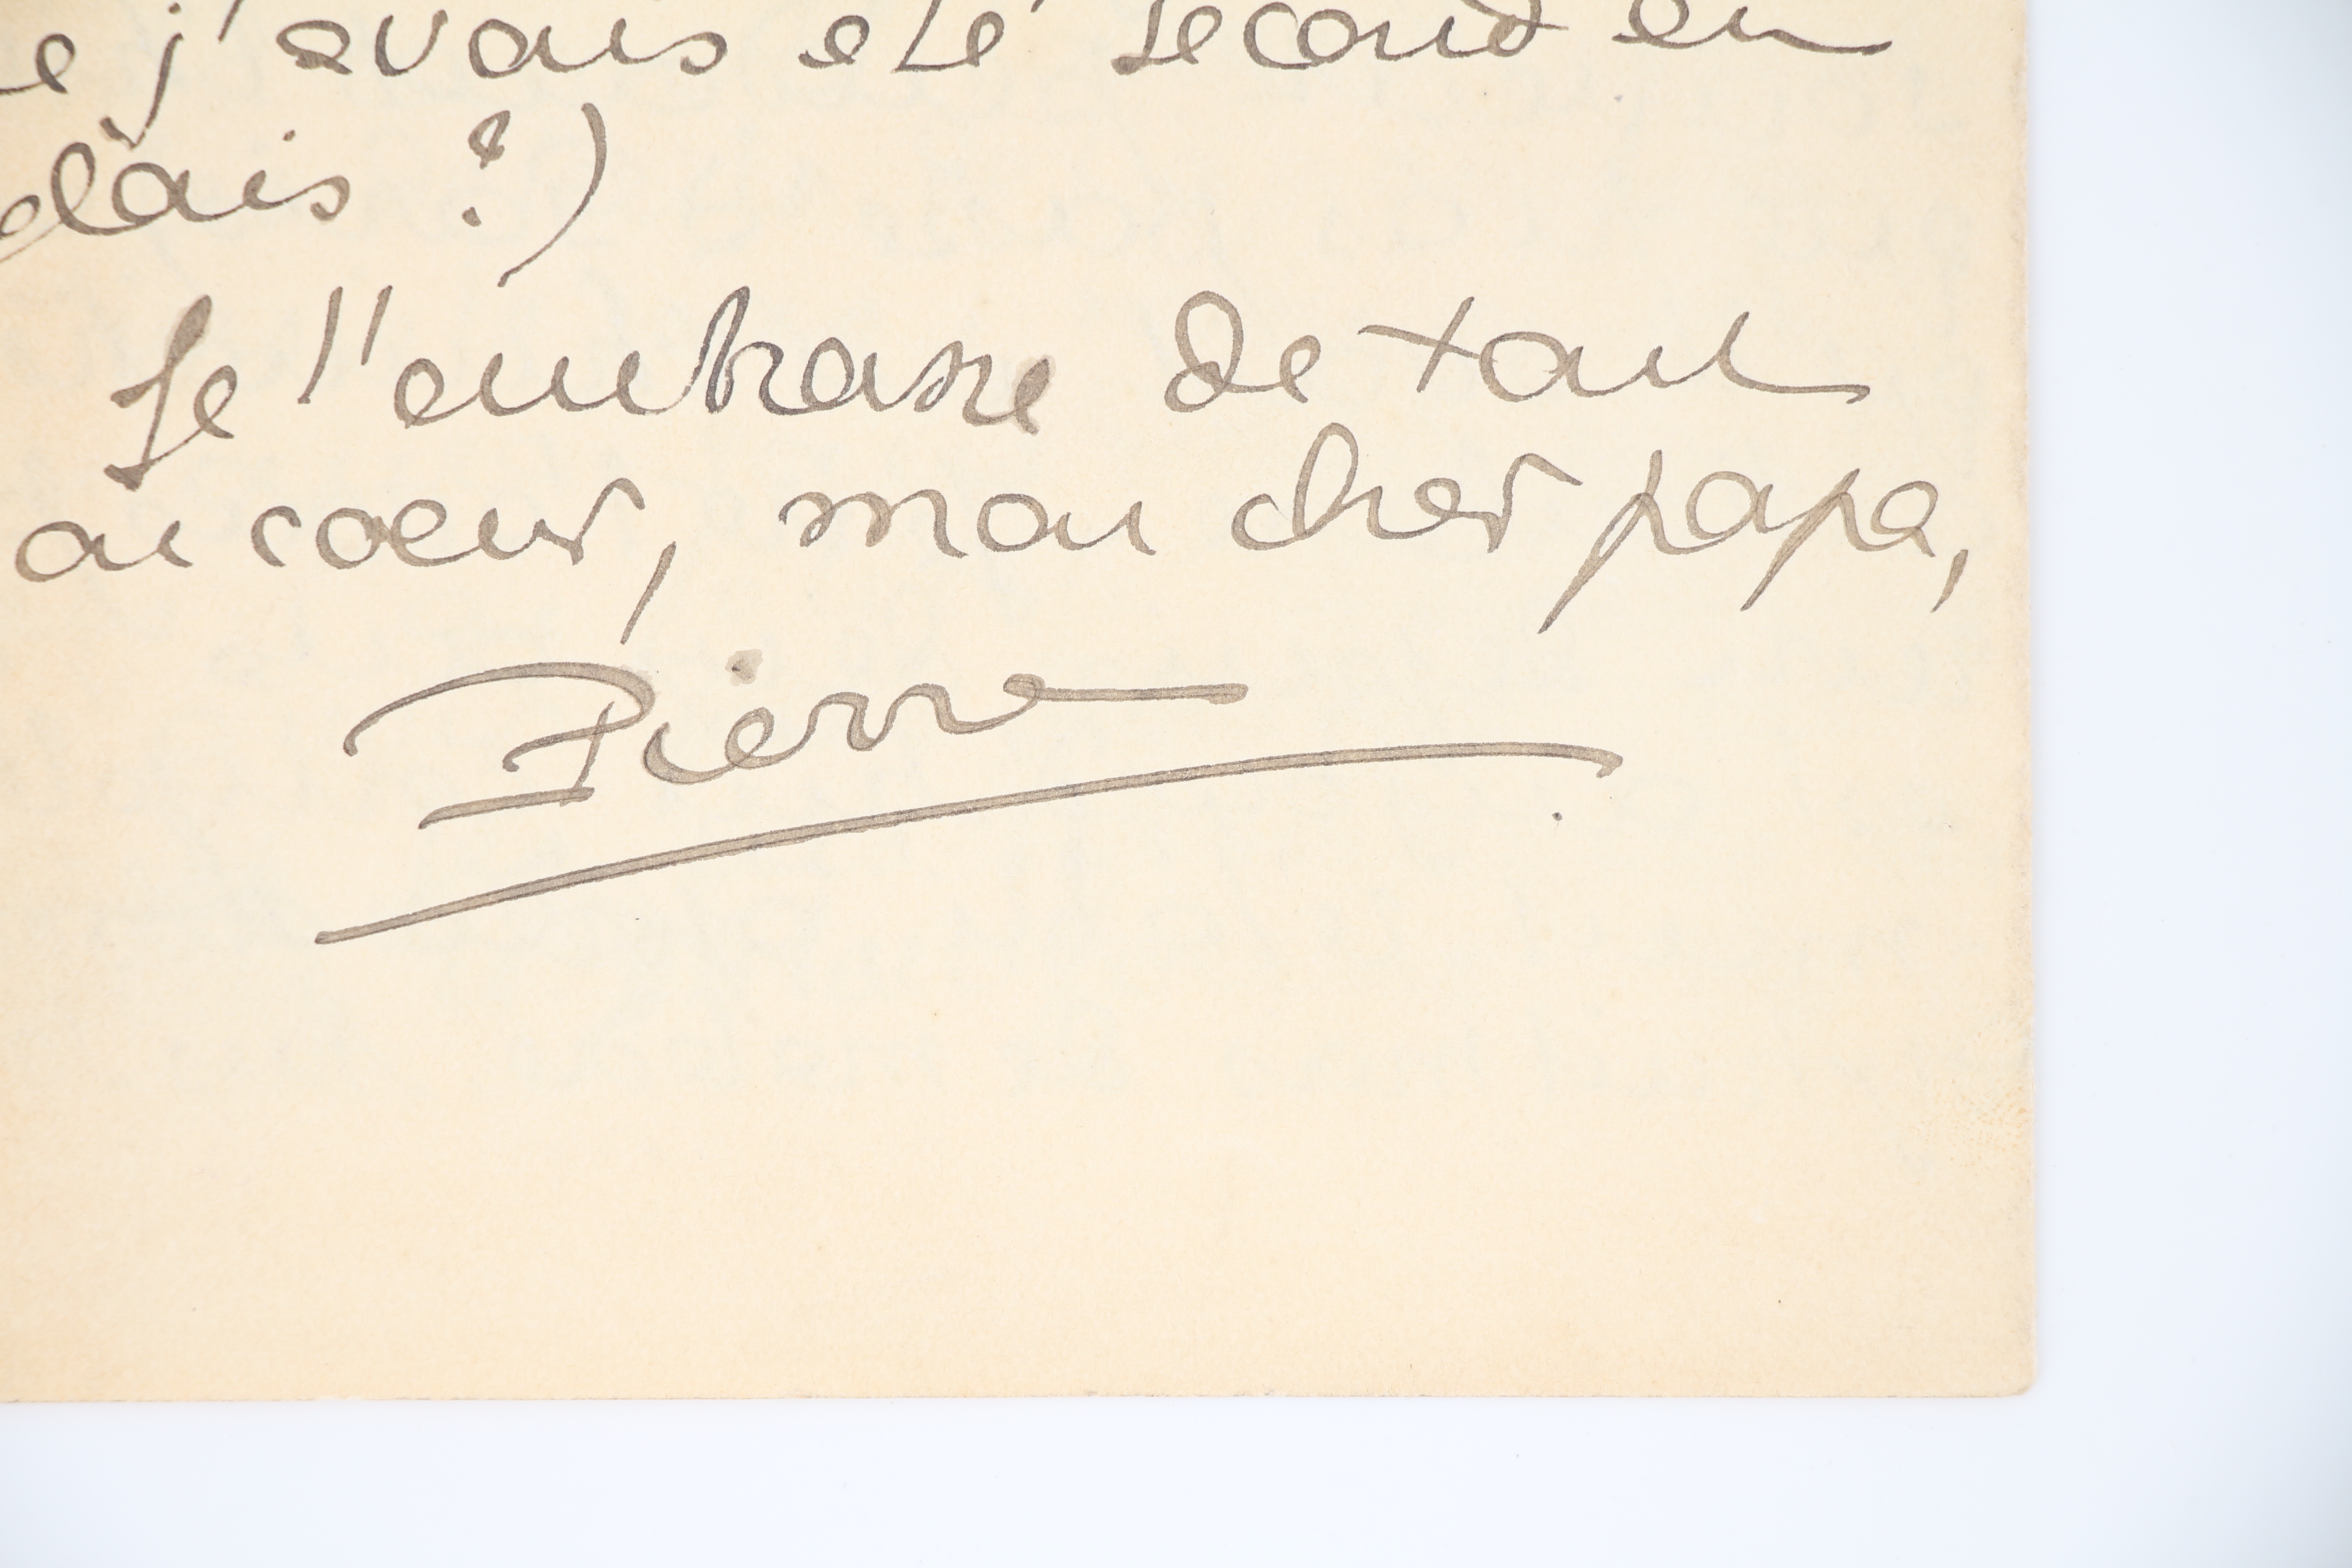 e j'avais été second en
glais ?)
Je t'embrasse de tout
ou coeur, mon cher papa,
Pierre